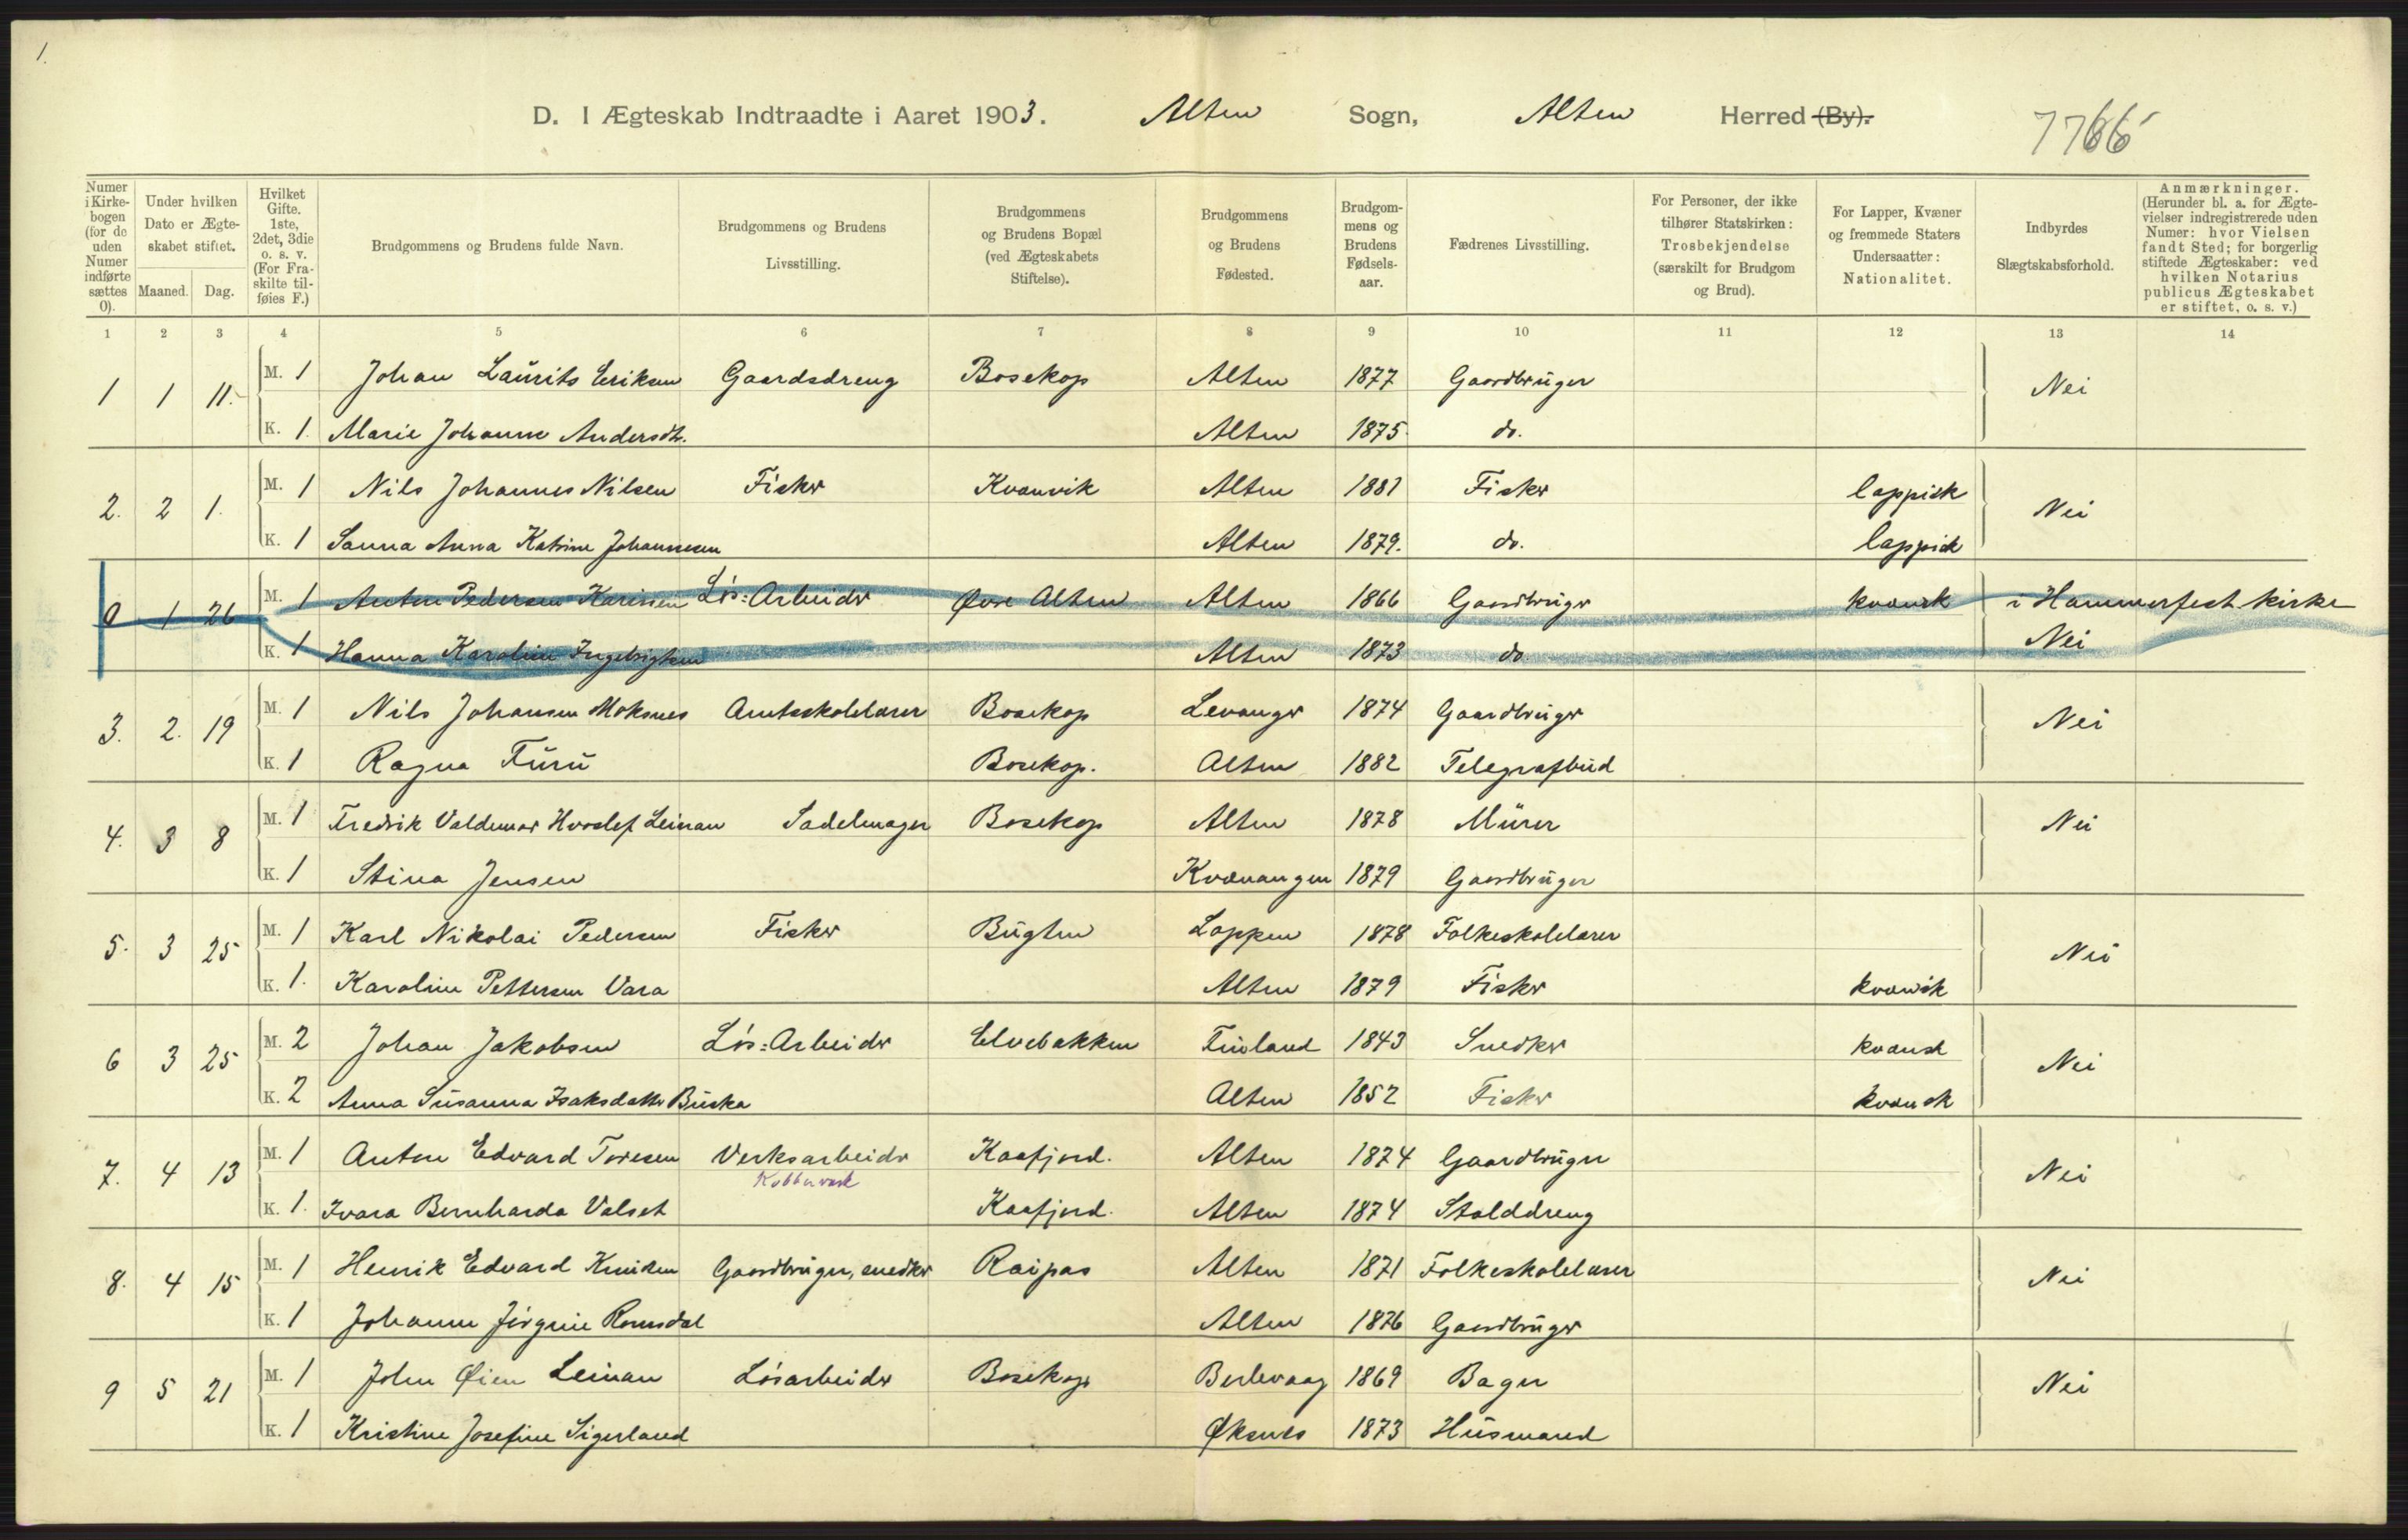 1.
D. I Ægteskab Indtraadte i Aaret 1903. Alten Sogn, Alten Herred (By). 7766
Numer i Kirkebogen (for de uden Numer indførte sættes 0).
Under hvilken Dato er Ægteskabet stiftet.
Maaned. Dag.
Hvilket Gifte. 1ste, 2det, 3die o. s. v. (For Fraskilte tilføies F.)
Brudgommens og Brudens fulde Navn.
Brudgommens og Brudens Livsstilling.
Brudgommens og Brudens Bopæl (ved Ægteskabets Stiftelse).
Brudgommens og Brudens Fødested.
Brudgommens og Brudens Fødselsaar.
Fædrenes Livsstilling.
For Personer, der ikke tilhører Statskirken: Trosbekjendelse (særskilt for Brudgom og Brud).
For Lapper, Kvæner og fremmede Staters Undersaatter: Nationalitet.
Indbyrdes Slægtskabsforhold.
Anmærkninger. (Herunder bl. a. for Ægtevielser indregistrerede uden Numer: hvor Vielsen fandt Sted; for borgerlig stiftede Ægteskaber: ved hvilken Notarius publicus Ægteskabet er stiftet, o. s. v.)
1 2 3 4 5 6 7 8 9 10 11 12 13 14
1 1 11. M. 1 Johan Laurits Eriksen Gaardsdreng Bosekop Alten 1877 Gaardbruger Nei
K. 1. Marie Johanne Andersdtr. Alten 1875 do.
2. 2 1. M. 1 Nils Johannes Nilsen Fisker Kvænvik Alten 1881 Fisker lappisk Nei
K. 1 Sanna Anna Katrine Johannesen Alten 1879. do. lappisk
0 1 26 M. 1 Anton Pedersen Løs=Arbeider Øvre Alten Alten 1866 Gaardbruger kvænsk i Hammerfest kirke
K. 1 Hanna Karoline Ingebrigtsen Alten 1873 do Nei
3. 2. 19 M. 1 Nils Johansen Moksnes Amtsskolelærer Bosekop Levanger 1874 Gaardbruger Nei
K. 1 Ragna Furu Bosekop. Alten 1882 Telegrafbud
4. 3 8 M. 1 Fredrik Valdemar Hvoslef Leinan Sadelmager Bosekop Alten 1878 Murer Nei
K. 1 Stina Jensen Kvænangen 1879 Gaardbruger
5. 3 25 M. 1 Karl Nikolai Pedersen Fisker Bugten Loppen 1878 Folkeskolelærer Nei
K. 1. Karoline Pettersen Vara Alten 1879 Fisker kvænsk
6 3 25 M. 2 Johan Jakobsen Løs=Arbeider Elvebakken Finland 1843 Snedker kvænsk Nei
K. 2 Anna Susanna Isaksdatter Buska Alten 1852 Fisker kvænsk
7. 4 13 M. 1 Anton Edvard Toresen Verksarbeider Kaafjord. Alten 1874 Gaardbruger Nei
Kobberverk
K. 1. Ivara Bernharda Valset Kaafjord. Alten 1874 Stalddreng
8. 4 15 M. 1 Henrik Edvard Gaardbruger, snedker Raipas Alten 1871 Folkeskolelærer Nei
K. 1 Johanne Jørgine Romsdal Alten 1876 Gaardbruger
9 5 21 M. 1 John Øien Leinan Løsarbeider Bosekop Berlevaag 1869 Bager Nei
K. 1 Kristine Josefine Sigerland Øksnes 1873 Husmand